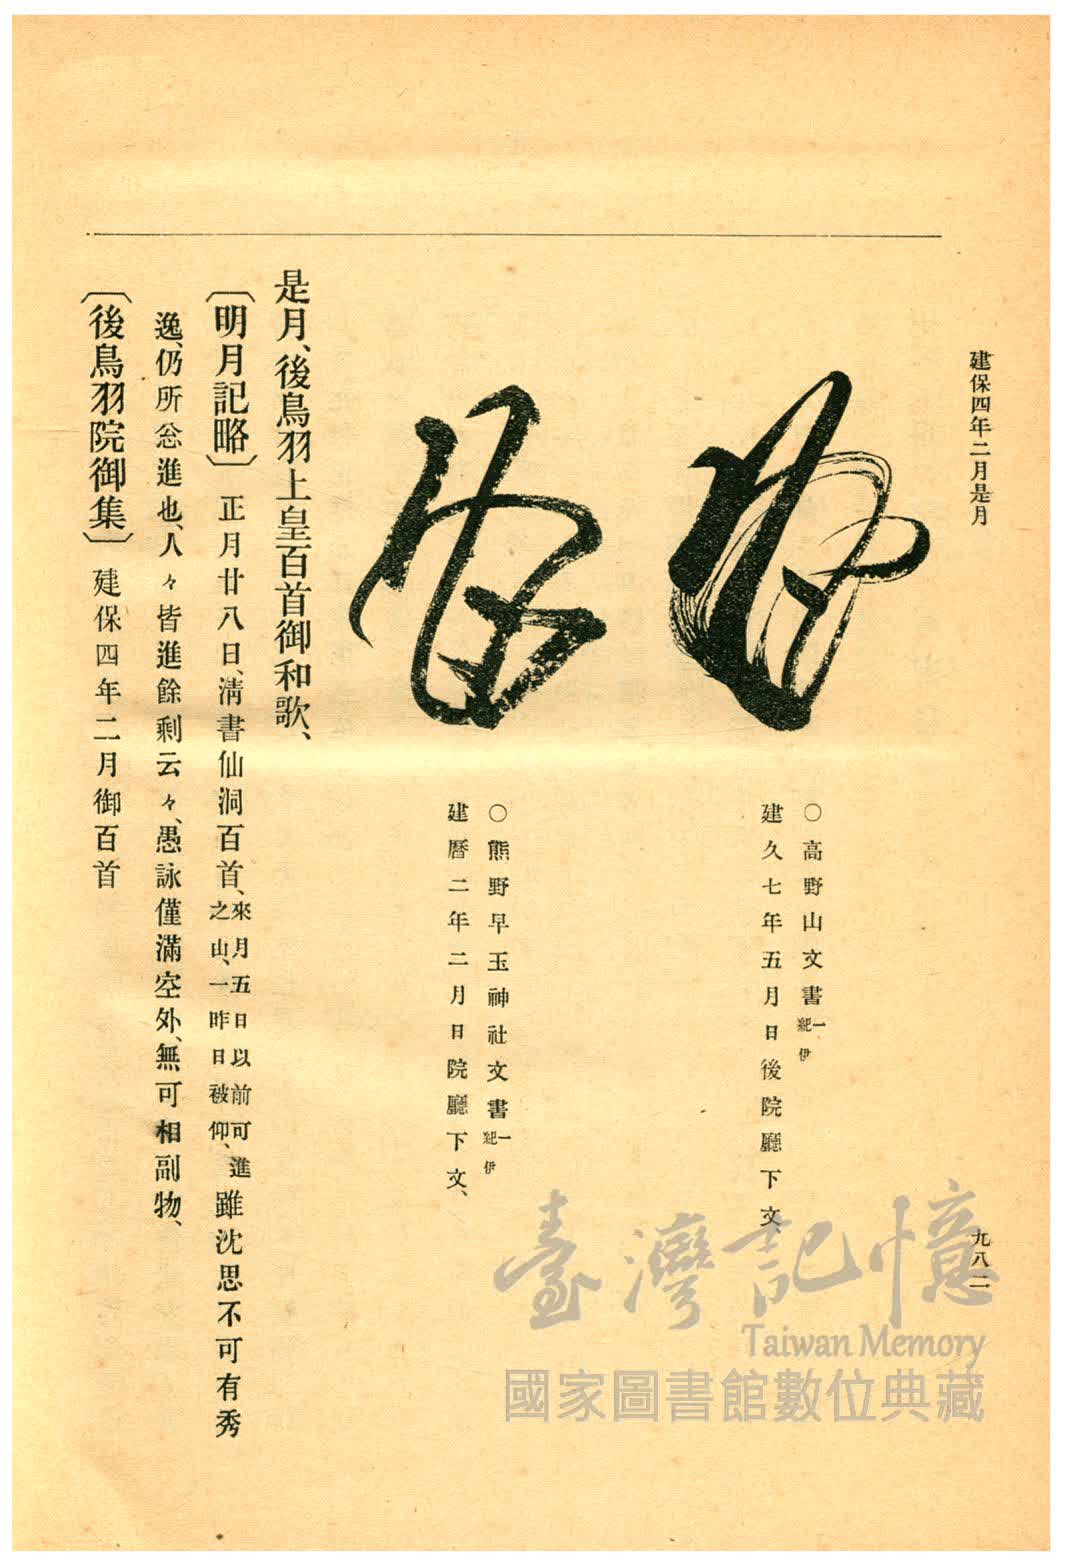 建保四年二月是月
九八二
〇高野山文書 一 紀伊
建久七年五月日後院廳下文、
〇熊野早玉神社文書 一 紀伊
建曆二年二月日院廳下文、
是月、後鳥羽上皇百首御和歌、
〔明月記略〕 正月廿八日、淸書仙洞百首、來月五日以前可進之由、一昨日被仰、雖沈思不可有秀
逸、仍所忩進也、人々皆進餘剩云々、愚詠僅滿空外、無可相副物、
〔後鳥羽院御集〕 建保四年二月御百首
臺灣記憶
Taiwan Memory
國家圖書館數位典藏